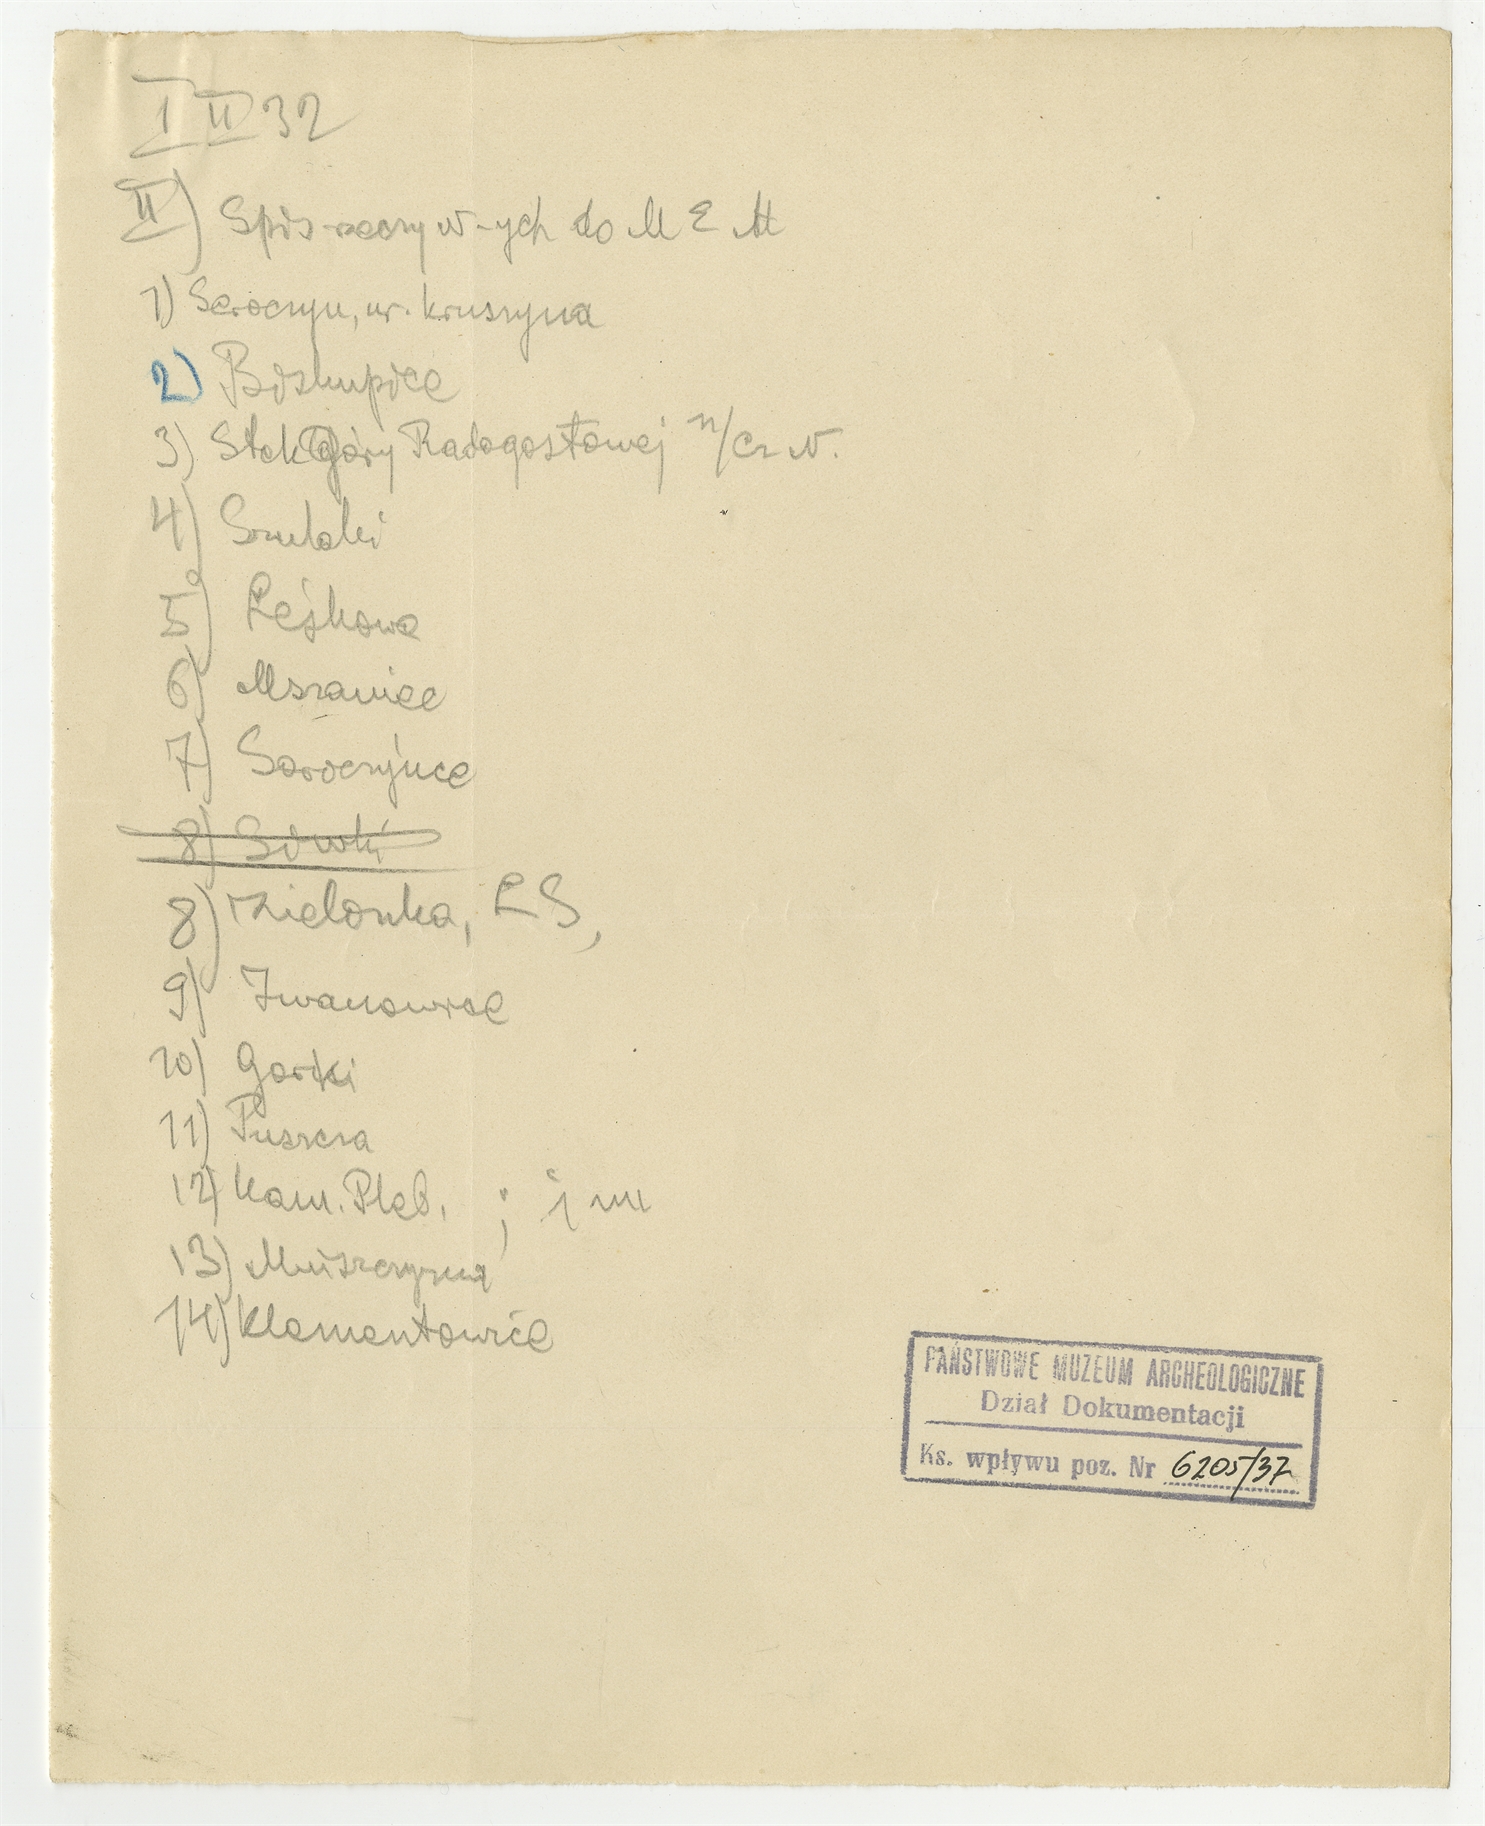 I II 32
II) Spis rzeczy w-ych do M E M
1) Seroczyn, ur. kruszyna
2) Biskupice
3) Stok Góry Radogostowej n/Cz W.
4)
5) Leśkowe
6) Mszaniec
7) Soroczyńce
8)
8) Zielonka, ES,
9) Iwanowice
10) Gorki
11) Puszcza
12) Kam. Pleb. ; i nn
13) Muszczyzna
14) Klementowice
PAŃSTWOWE MUZEUM ARCHEOLOGICZNE
Dział Dokumentacji
Ks. wpływu poz. Nr 6205/37